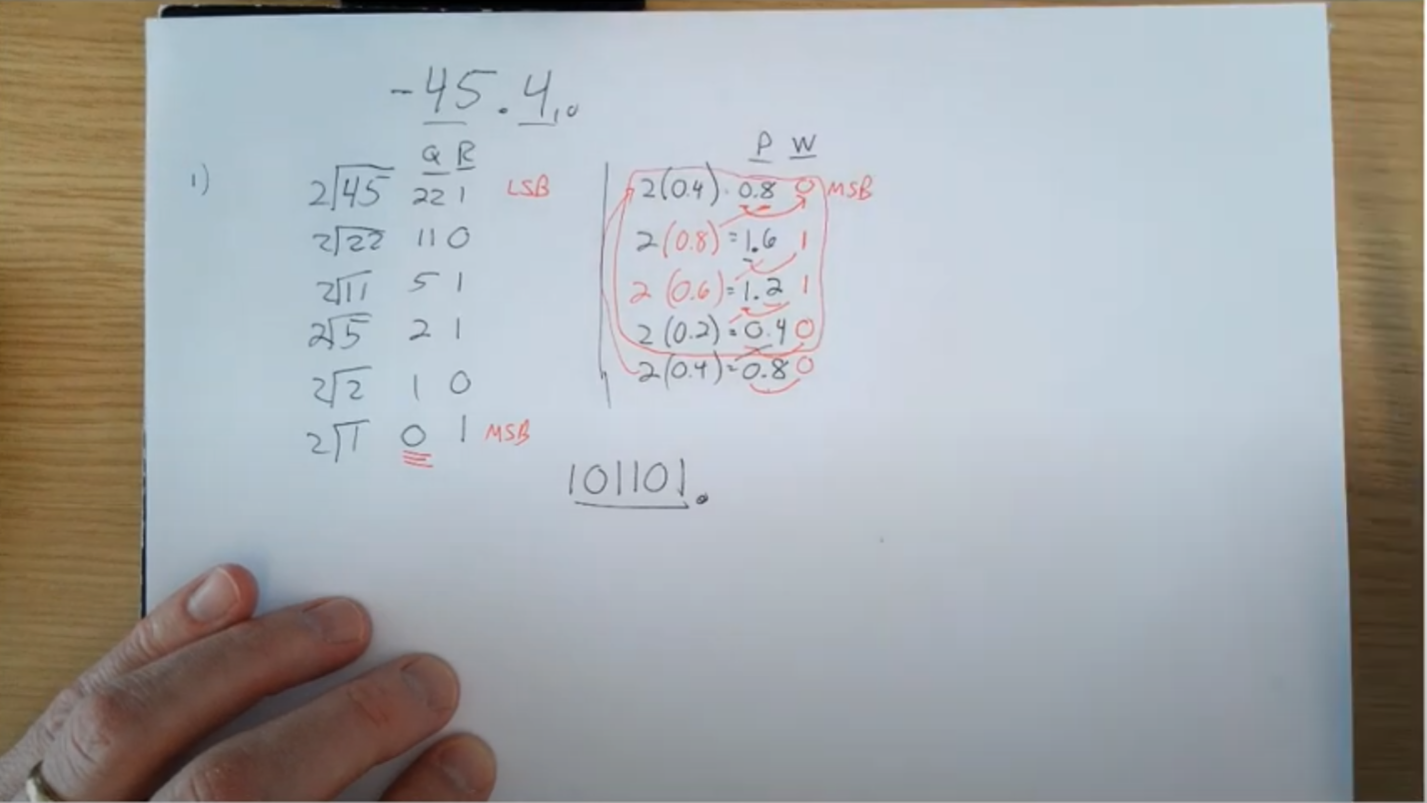 -45.4₁₀
Q R
1) 2⟌45 22 1 LSB
2⟌22 11 0
2⟌11 5 1
2⟌5 2 1
2⟌2 1 0
2⟌1 0 1 MSB
P W
2(0.4) · 0.8 0 MSB
2(0.8)=1.6 1
2(0.6)=1.2 1
2(0.2)=0.4 0
2(0.4)=0.8 0
101101.